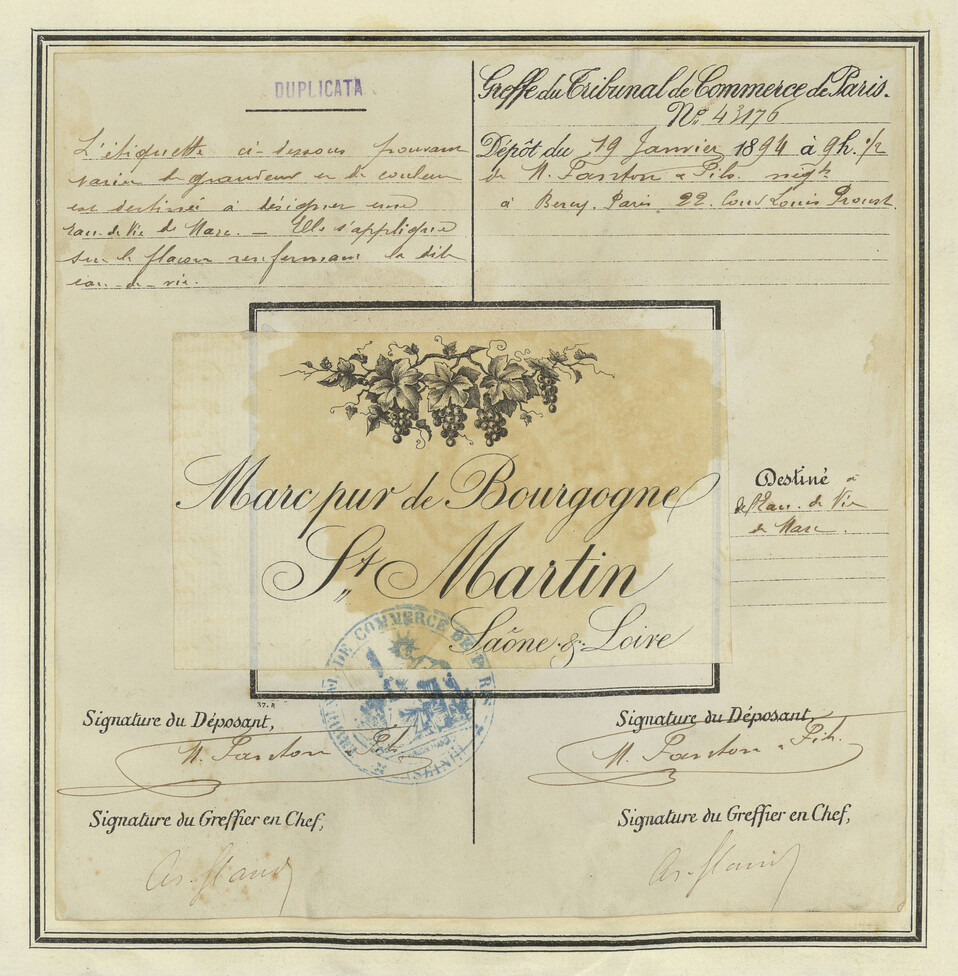 DUPLICATA
L'étiquette ci-dessous pouvant
varier de grandeur et de couleur
est destinée à désigner une
Eau-de-Vie de Marc. — Elle s'applique
sur le flacon renfermant la dite
eau-de-vie.
Greffe du Tribunal de Commerce de Paris.
No. 43176
Dépôt du 19 Janvier 1894 à 9h. 1/2
de M. Fanton & Fils. négts
à Bercy. Paris 22. Cour Louis Proust.
Marc pur de Bourgogne
St. Martin
Saône & Loire
Destiné à
de l'Eau-de-Vie
de Marc.
TRIBUNAL DE COMMERCE DE PARIS
(SEINE)
37. A
Signature du Déposant,
M. Fanton & Fils.
Signature du Greffier en Chef,
Signature du Déposant,
M. Fanton & Fils.
Signature du Greffier en Chef,